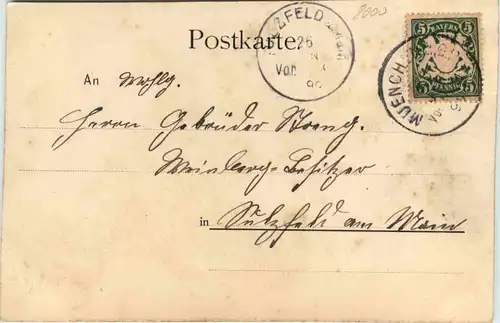 8000
Postkarte
26
Vor
BAYERN
5 5
PFENNIG
MUENCH
An Wohlg.
Herren Gebrüder Streng
Weinberg-Besitzer
in Sulzfeld am Main